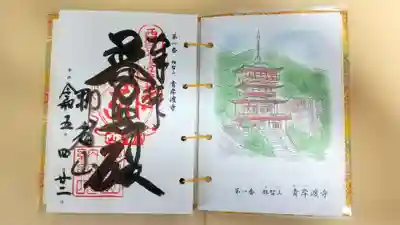 第一番 那智山 青岸渡寺
奉拝
普照殿
那智山
令五 四 廿二
第一番 那智山 青岸渡寺